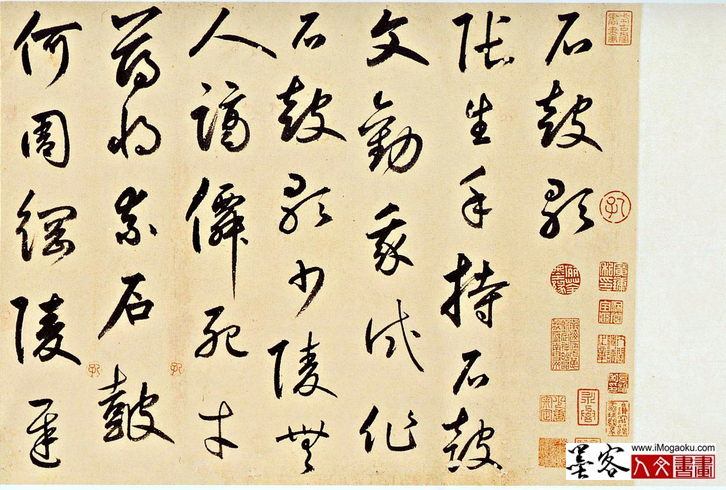 石鼓歌
張生手持石鼓
文勸我試作
石鼓歌少陵無
人謫僊死才
薄將奈石鼓
何周綱陵遲
www.iMogaoku.com
墨客 人文書畫